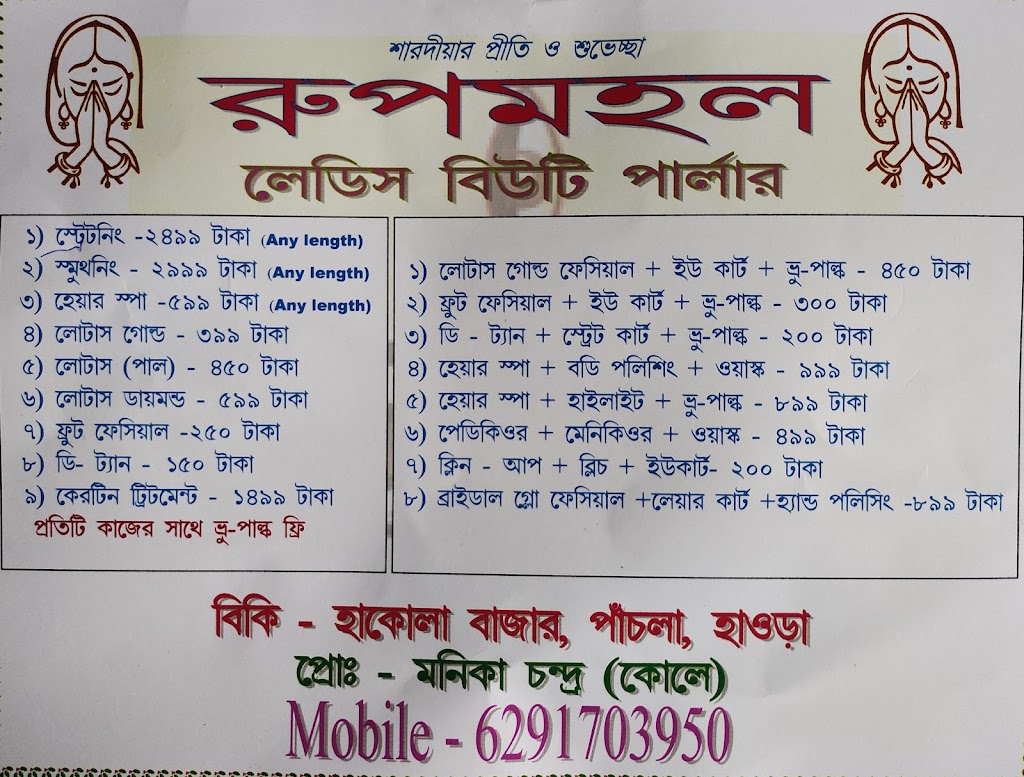 শারদীয়ার প্রীতি ও শুভেচ্ছা
রুপমহল
লেডিস বিউটি পার্লার
১) স্ট্রেটনিং -২৪৯৯ টাকা (Any length)
২) স্মুথনিং - ২৯৯৯ টাকা (Any length)
৩) হেয়ার স্পা -৫৯৯ টাকা (Any length)
৪) লোটাস গোল্ড - ৩৯৯ টাকা
৫) লোটাস (পাল) - ৪৫০ টাকা
৬) লোটাস ডায়মন্ড - ৫৯৯ টাকা
৭) ফ্রুট ফেসিয়াল -২৫০ টাকা
৮) ডি- ট্যান - ১৫০ টাকা
৯) কেরটিন ট্রিটমেন্ট - ১৪৯৯ টাকা
প্রতিটি কাজের সাথে ভ্রু-পাল্ক ফ্রি
১) লোটাস গোল্ড ফেসিয়াল + ইউ কার্ট + ভ্রু-পাল্ক - ৪৫০ টাকা
২) ফ্রুট ফেসিয়াল + ইউ কার্ট + ভ্রু-পাল্ক - ৩০০ টাকা
৩) ডি - ট্যান + স্ট্রেট কার্ট + ভ্রু-পাল্ক - ২০০ টাকা
৪) হেয়ার স্পা + বডি পলিশিং + ওয়াস্ক - ৯৯৯ টাকা
৫) হেয়ার স্পা + হাইলাইট + ভ্রু-পাল্ক - ৮৯৯ টাকা
৬) পেডিকিওর + মেনিকিওর + ওয়াস্ক - ৪৯৯ টাকা
৭) ক্লিন - আপ + ব্লিচ + ইউকার্ট- ২০০ টাকা
৮) ব্রাইডাল গ্লো ফেসিয়াল +লেয়ার কার্ট +হ্যান্ড পলিসিং -৮৯৯ টাকা
বিকি - হাকোলা বাজার, পাঁচলা, হাওড়া
প্রোঃ - মনিকা চন্দ্র (কোলে)
Mobile - 6291703950